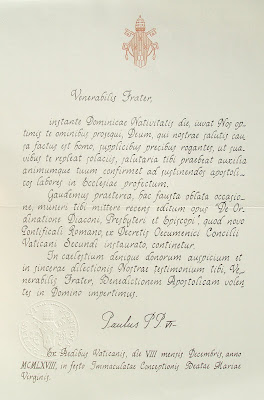 Venerabilis Frater,
instante Dominicae Nativitatis die, iuvat Nos op-
timis te ominibus prosequi, Deum, qui nostrae salutis cau-
sa factus est homo, supplicibus precibus rogantes, ut sua-
vibus te repleat solaciis, salutaria tibi praebeat auxilia
animumque tuum confirmet ad sustinendos apostoli-
cos labores in Ecclesiae profectum.
Gaudemus praeterea, hac fausta oblata occasio-
ne, muneri tibi mittere recens editum opus "De Or-
dinatione Diaconi, Presbyteri et Episcopi", quod novo
Pontificali Romano, ex Decretis Oecumenici Concilii
Vaticani Secundi instaurato, continetur.
In caelestium denique donorum auspicium et
in sincerae dilectionis Nostrae testimonium tibi, Ve-
nerabilis Frater, Benedictionem Apostolicam volen-
tes in Domino impertimus.
Paulus PP. VI
Ex Aedibus Vaticanis, die VIII mensis Decembris, anno
MCMLXVIII, in festo Immaculatae Conceptionis Beatae Mariae
Virginis.